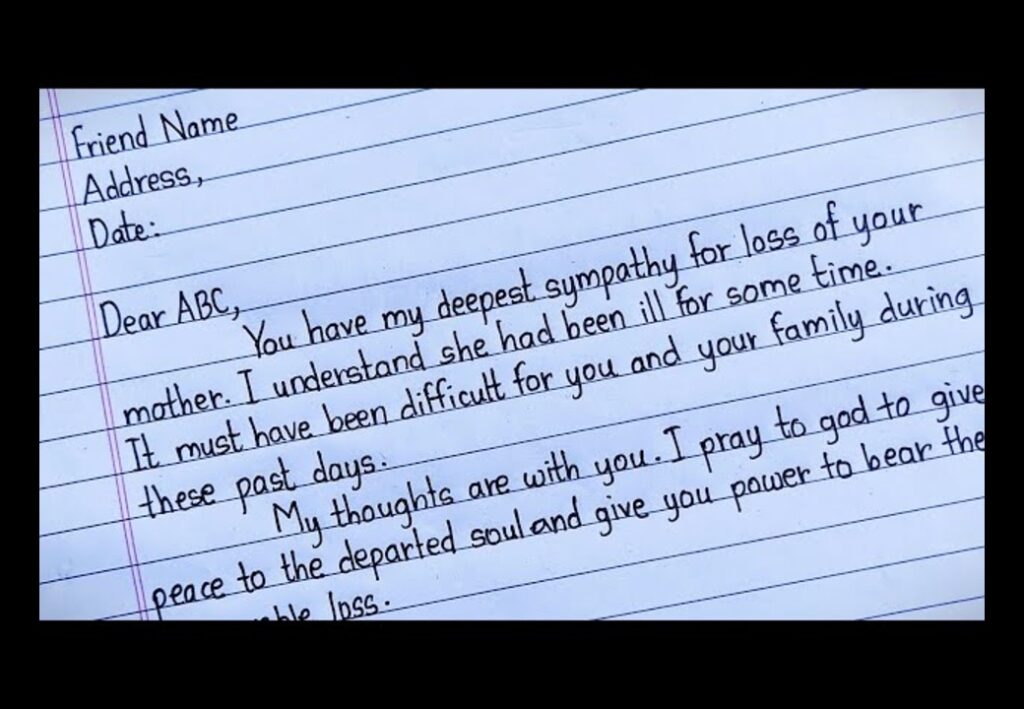 Friend Name
Address,
Date:
Dear ABC,
You have my deepest sympathy for loss of your
mother. I understand she had been ill for some time.
It must have been difficult for you and your family during
these past days.
My thoughts are with you. I pray to god to give
peace to the departed soul and give you power to bear the
loss.